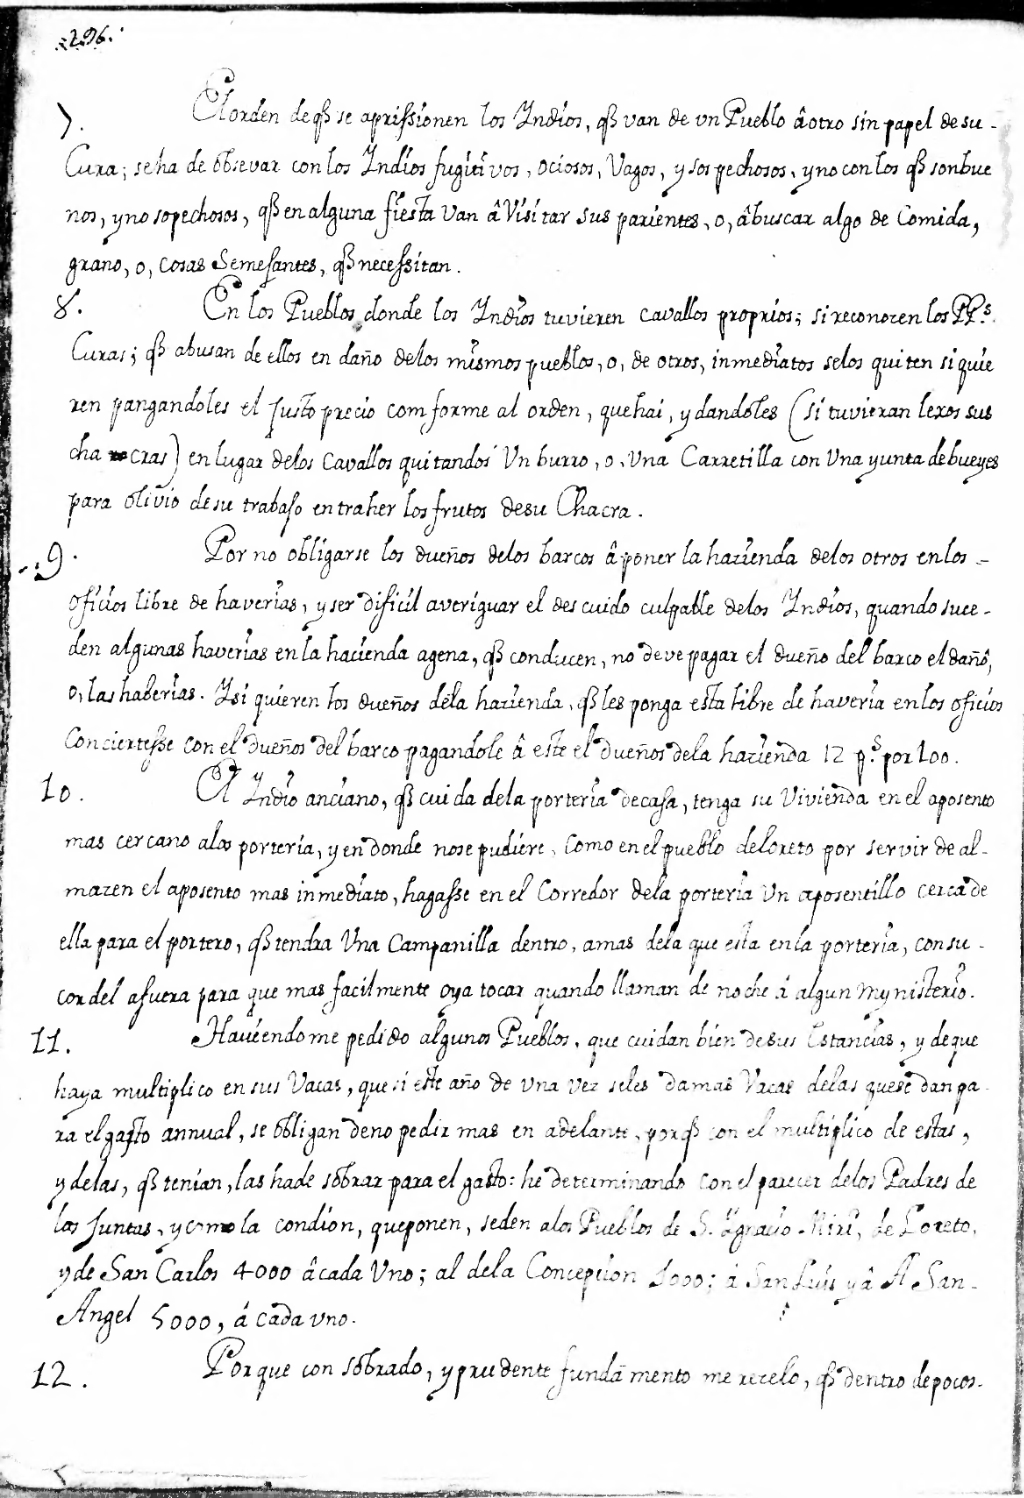 296.
7. El orden de q̃ se aprissionen los Yndios, q̃ van de vn Pueblo â otro sin papel de su
Cura; se ha de obsevar con los Yndios fugitivos, ociosos, Vagos, y sospechosos, y no con los q̃ son bue
nos, y no sopechosos, q̃ en alguna fiesta van â Visitar sus parientes, o, â buscar algo de Comida,
grano, o, cosas Semejantes, q̃ necessitan.
8. En los Pueblos donde los Yndios tuvieren cavallos proprios; si reconocen los PP.s
Curas; q̃ abusan de ellos en daño de los mismos pueblos, o, de otros, inmediatos se los quiten si quie
ren pangandoles el justo precio comforme al orden, que hai, y dandoles (si tuvieran lexos sus
cha cras) en lugar de los Cavallos quitandos Vn burro, o, Una Carretilla con Una yunta de bueyes
para olivio de su trabajo en traher los frutos de su Chacra.
9. Por no obligarse los dueños de los barcos â poner la hazienda de los otros en los -
oficios libre de haverias, y ser dificil averiguar el descuido culpable de los Yndios, quando suce-
den algunas haverias en la hacienda agena, q̃ conducen, no deve pagar el dueño del barco el daño,
o, las haberias. Y si quieren los dueños dela hazienda, q̃ les ponga esta libre de haveria en los oficios
Conciertesse con el dueños del barco pagandole â este el dueños dela hazienda 12 p.s por 100.
10. El Yndio anciano, q̃ cuida dela porteria de casa, tenga su Vivienda en el aposento
mas cercano alos porteria, y en donde no se pudiere, Como en el pueblo de Loreto por servir de al-
mazen el aposento mas inmediato, hagasse en el Corredor dela porteria Vn aposentillo cerca de
ella para el portero, q̃ tendra Una Campanilla dentro, amas dela que esta en la porteria, con su -
cordel afuera para que mas facilmente oya tocar quando llaman de noche â algun Mynisterio.
11. Haviendome pedido algunos Pueblos, que cuidan bien de sus Estancias, y de que
haya multiplico en sus Vacas, que si este año de una vez seles da mas Vacas delas que se dan pa
ra el gasto annual, se obligan de no pedir mas en adelante, porq̃ con el multiplico de estas,
y delas, q̃ tenian, las hade sobrar para el gasto: he determinando con el parecer de los Padres de
las Juntas, y como la condion, que ponen, seden alos Pueblos de S. Ygnacio Miri, de Loreto,
y de San Carlos 4000 â cada Uno; al dela Concepcion 1000; â San Luis y â A San -
Angel 5000, â cada vno.
12. Porque con sobrado, y prudente fundã mento me recelo, q̃ dentro de pocos-